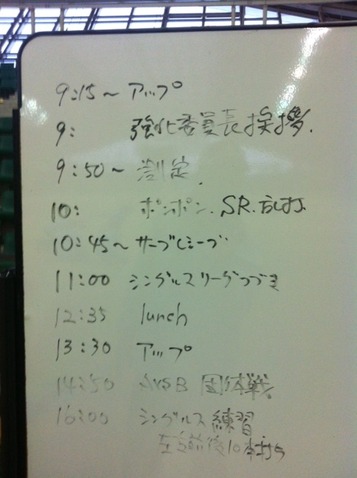 9:15～ アップ
9: 強化委員長挨拶.
9:50～ 測定.
10: ポンポン. SR. 乱打
10:45～ サーブレシーブ
11:00 シングルスリーグつづき
12:35 lunch
13:30 アップ
14:50 AvsB 団体戦
16:00 シングルス練習
左右前後10本打ち